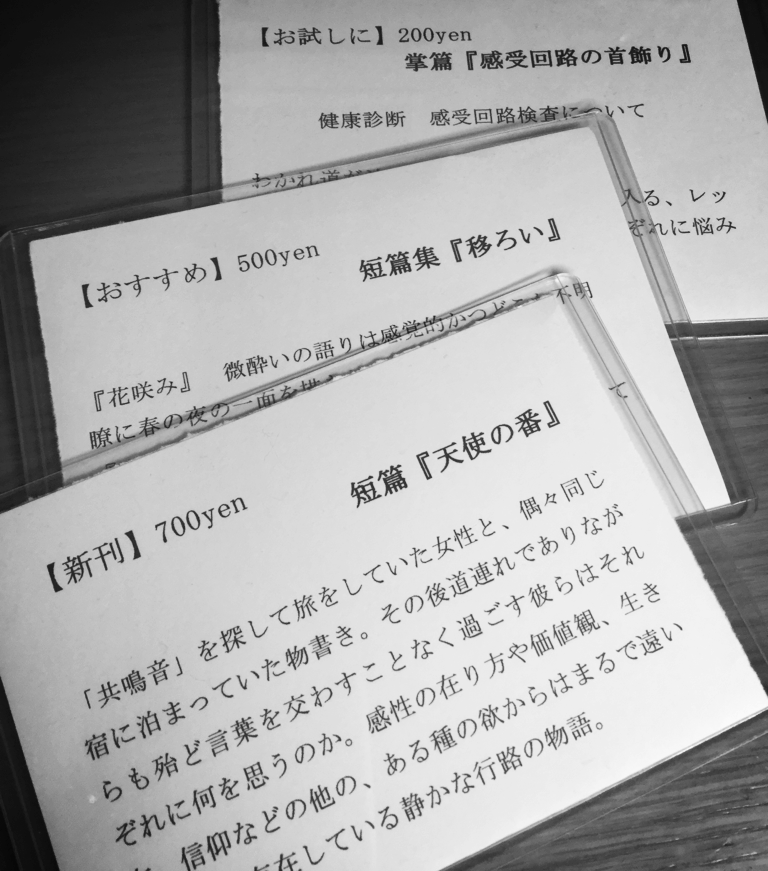 【お試しに】200yen
掌篇『感受回路の首飾り』
健康診断　感受回路検査について
わかれ道
入る、レッ
ぞれに悩み
【おすすめ】500yen
短篇集『移ろい』
『花咲み』　微酔いの語りは感覚的かつどこか不明
瞭に春の夜の一面を
て
【新刊】700yen
短篇『天使の番』
「共鳴音」を探して旅をしていた女性と、偶々同じ
宿に泊まっていた物書き。その後道連れでありなが
らも殆ど言葉を交わすことなく過ごす彼らはそれ
ぞれに何を思うのか。感性の在り方や価値観、生き
信仰などの他の、ある種の欲からはまるで遠い
在している静かな行路の物語。